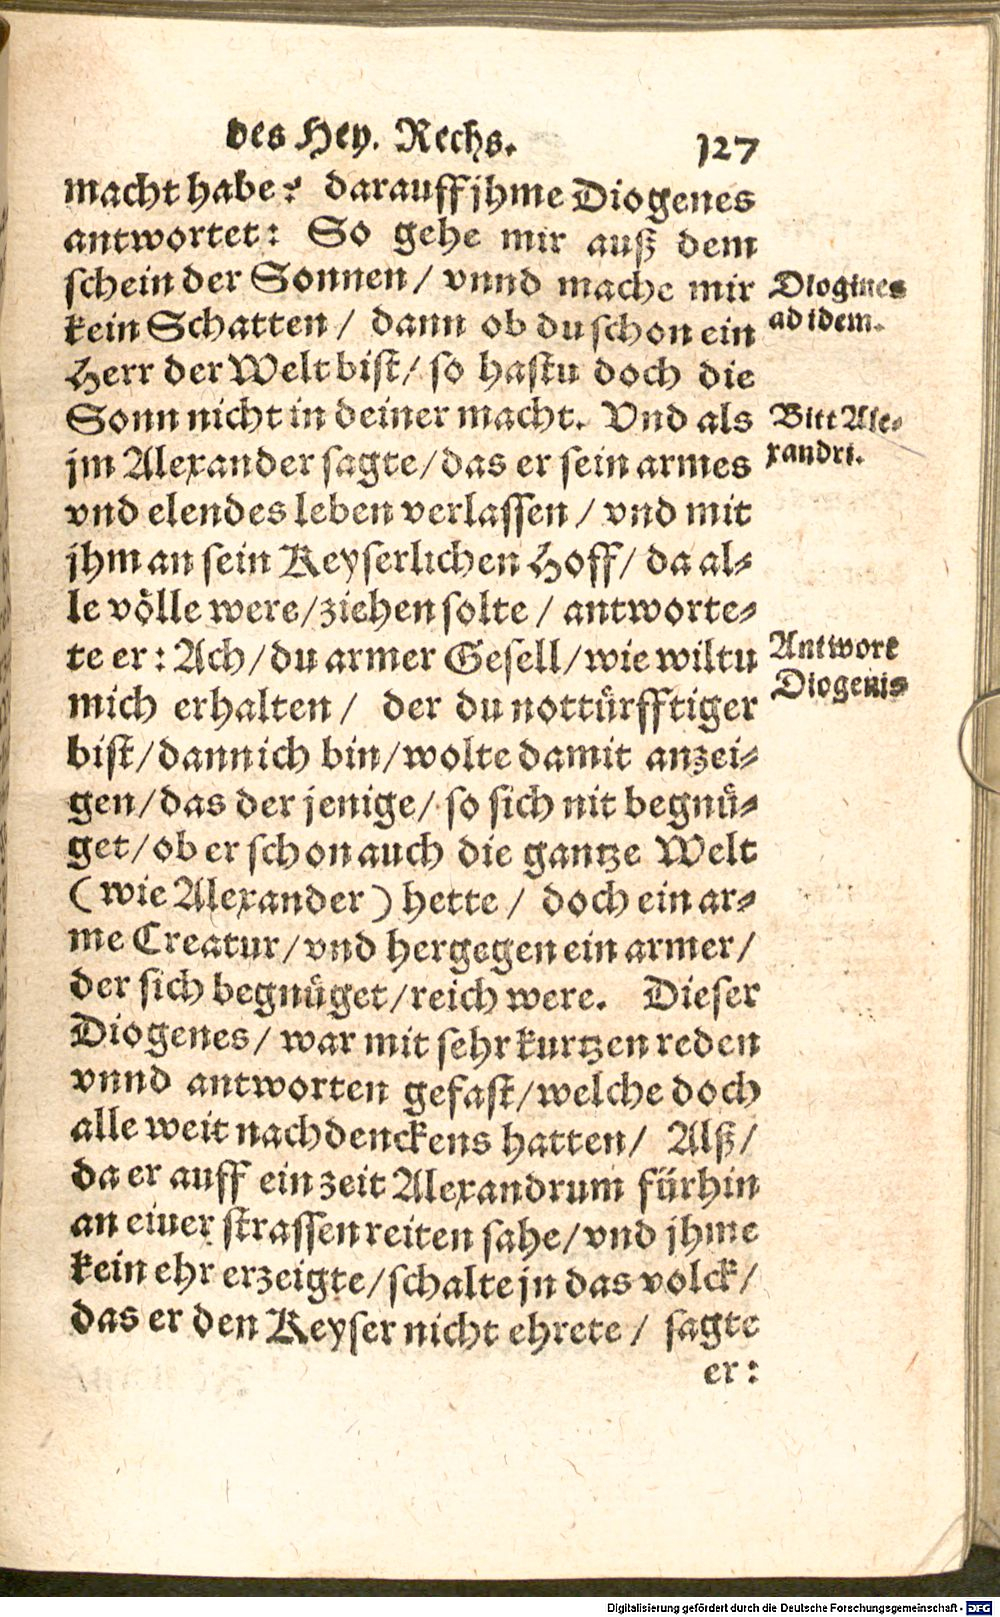 des Hey. Rechs. 127
macht habe? darauff jhme Diogenes
antwortet: So gehe mir auß dem
schein der Sonnen / vnnd mache mir
kein Schatten / dann ob du schon ein
Herr der Welt bist / so hastu doch die
Sonn nicht in deiner macht. Vnd als
jm Alexander sagte / das er sein armes
vnd elendes leben verlassen / vnd mit
jhm an sein Keyserlichen Hoff / da al-
le völle were / ziehen solte / antworte-
te er: Ach / du armer Gesell / wie wiltu
mich erhalten / der du nottürfftiger
bist / dann ich bin / wolte damit anzei-
gen / das der jenige / so sich nit begnü-
get / ob er schon auch die gantze Welt
(wie Alexander) hette / doch ein ar-
me Creatur / vnd hergegen ein armer /
der sich begnüget / reich were. Dieser
Diogenes / war mit sehr kurtzen reden
vnnd antworten gefast / welche doch
alle weit nachdenckens hatten / Alß /
da er auff ein zeit Alexandrum fürhin
an einer strassen reiten sahe / vnd jhme
kein ehr erzeigte / schalte jn das volck /
das er den Keyser nicht ehrete / sagte
er:
Diogines
ad idem.
Bitt Ale-
xandri.
Antwort
Diogenis
Digitalisierung gefördert durch die Deutsche Forschungsgemeinschaft - DFG